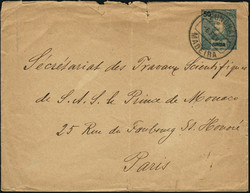 MADEIRA
Secrétariat des Travaux Scientifiques
de S.A.S. le Prince de Monaco
25 Rue du Faubourg St Honoré
Paris